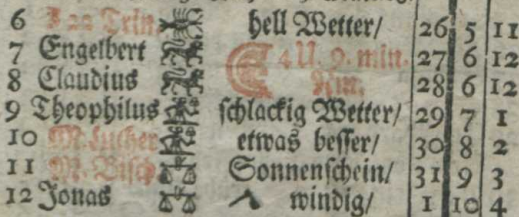 6 J 22 Trin. hell Wetter/ 26 5 11
7 Engelbert 4 U. 9. min. 27 6 12
8 Claudius Nm. 28 6 12
9 Theophilus schlackig Wetter/ 29 7 1
10 M. Luther etwas besser/ 30 8 2
11 M. Bisch Sonnenschein/ 31 9 3
12 Jonas windig/ 1 10 4